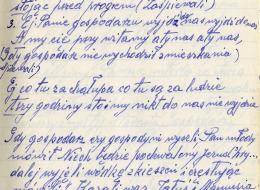 stojąc przed progiem (Zaśpiewali)
3. Ej Panie gospodarzu wyjdź do nas wyjdź do nas
A my cię przywitamy aty nas aty nas,
(Gdy gospodarz nie wychodził z mieszkania)
śpiewali)
Ej co tu za chałupa co tu są za ludzie
trzy godziny stoimy nikt do nas nie wyjdzie
Gdy gospodarz czy gospodyni wyszli Pan młody
mówił Niech będzie pochwalony Jezus Chry...
dalej wyjęli wódkę kieliszek i częstując